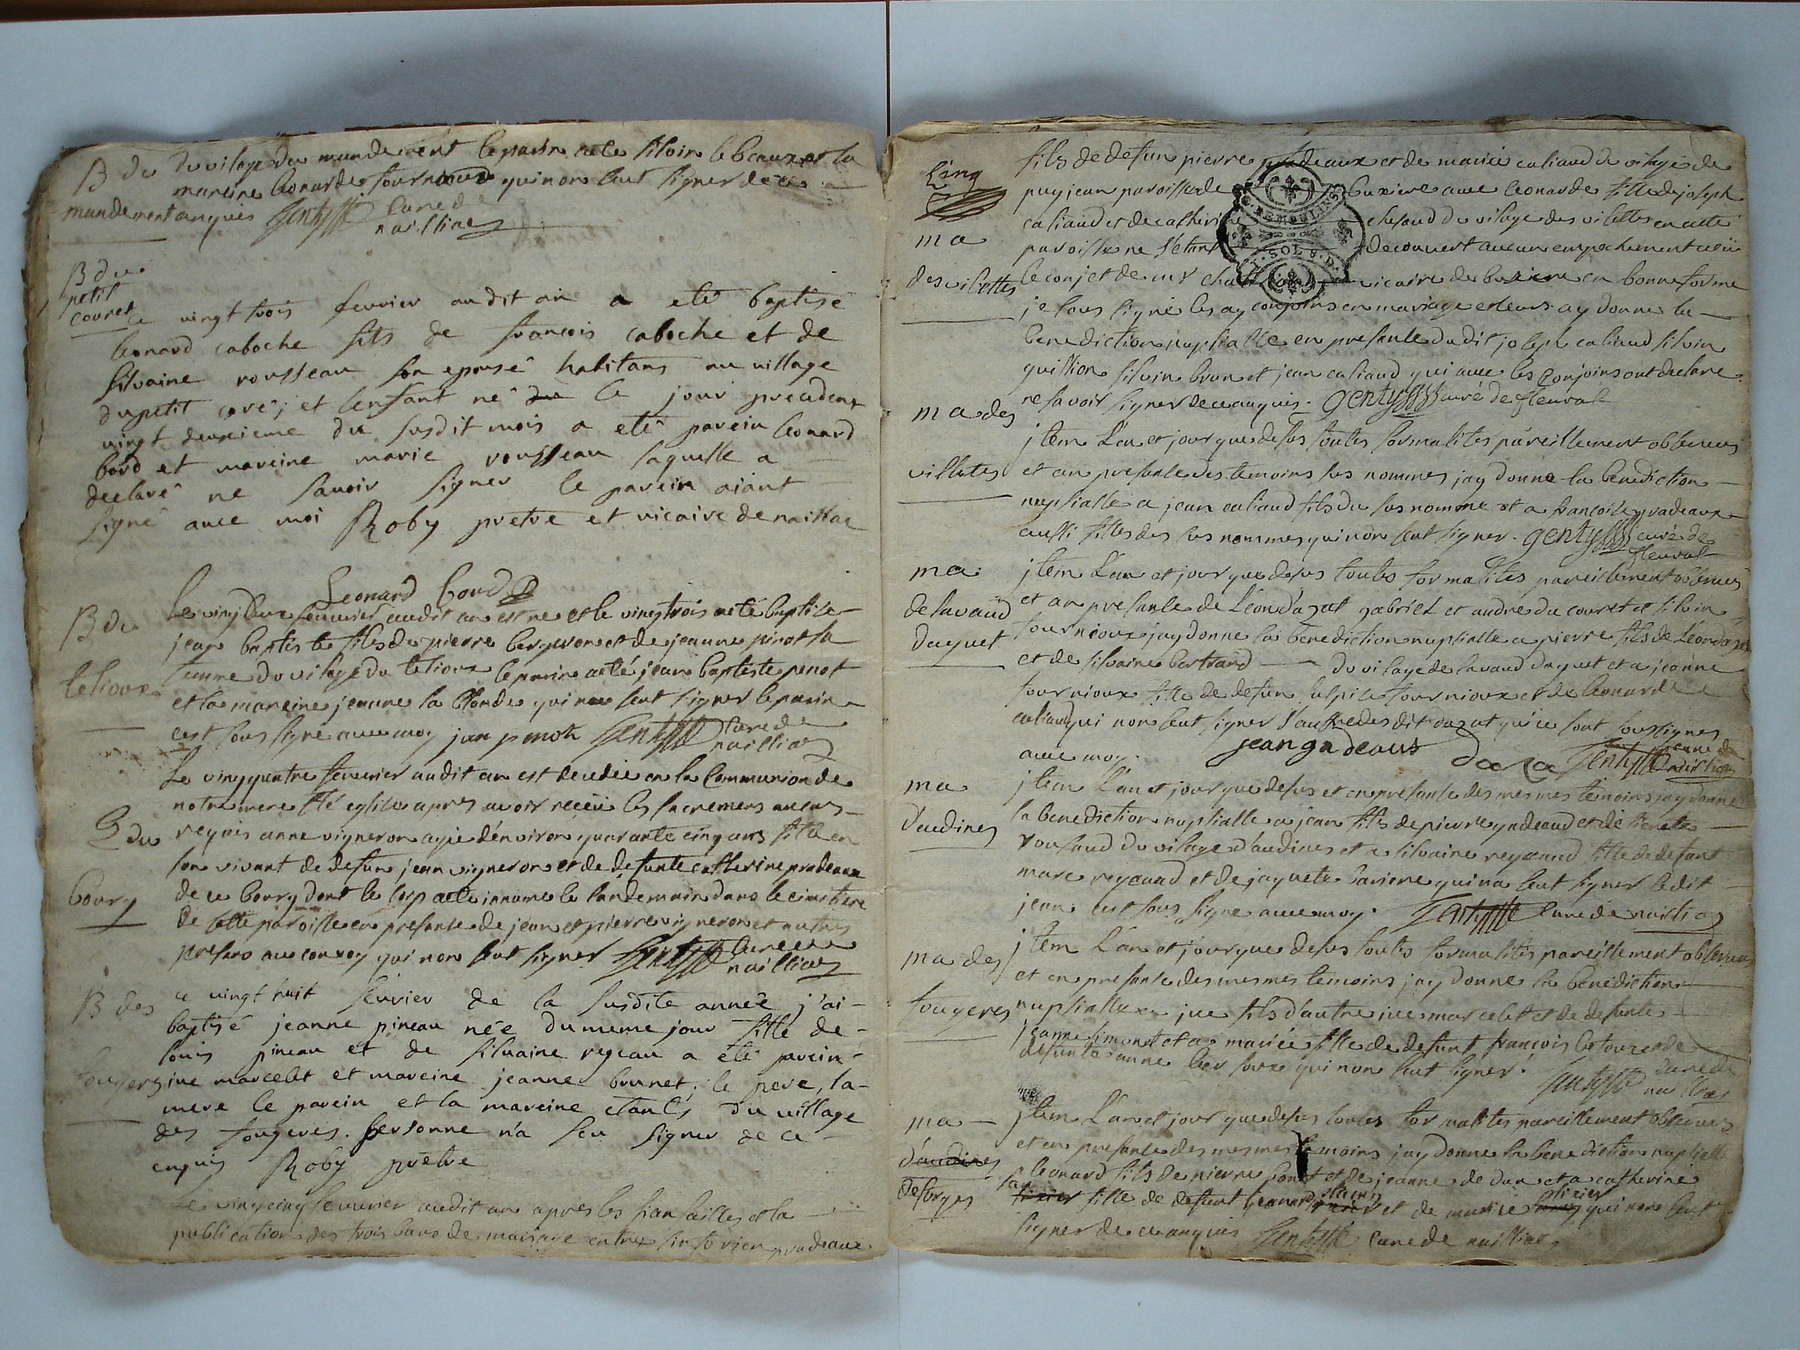 B du
mandement
du vilage du mandement le parin a ete silvin le beaux et la
mareine leonarde fournioux qui non seut signer de ce
anquis Gentysss curé de
nailliac
B du
petit
couret
Ce vingt trois fevrier au dit an a eté baptisé
leonard caboche fils de francois caboche et de
silvaine rousseau son epouse habitans au village
du petit coré; et l'enfant né le jour precedent
vingt deuxieme du susdit mois a eté parein leonard
bord et mareine marie rousseau laquelle a
declaré ne savoir signer le parein aiant
signé avec moi Roby pretre et vicaire de naillac
Leonard bord
B du
telioux
Le vingt deux fevrier audit an est né et le vingt trois a eté baptise
jean baptiste fils de pierre bergeron et de jeanne pinot sa
femme du vilage du telioux le parin a eté jean baptiste penot
et la mareine jeanne la blonde qui non seut signer le parin
c'est sous signé avec moy jean penot Gentysss curé de
nailliac
S du
bourg
Le vingt quatre fevrier audit an est decedée en la communion de
notre mere ste eglise apres avoir recëu les sacremens anceux
requis anne vigneron agée d'environ quarante cinq ans fille en
son vivant de defun jean vigneron et de defunte catherine pradeaux
de ce bourg dont le corp a eté innume le landemain dans le cimitiere
de cette paroisse en presance de jean et pierre vigneron et autres
presans au convoy qui non seut signer Gentysss curé de
nailliac
B des
fougeres
ce vingt huit fevrier de la susdite année j'ai
baptisé jeanne pineau née du meme jour fille de
louis pineau et de silvaine rejeau a eté parein
jve marcelet et mareine jeanne brunet; le pere, la
mere le parein et la mareine etants du village
des fougeres. personne n'a seu signer de ce
enquis Roby prêtre
Le vingt cinq fevrier audit an apres les fiansailles et la
publication des trois bans de mariage entre pradeaux
Cinq
ma
des vilettes
fils de defun pierre pradeaux et de marie caliaud du vilage de
puy jean paroisse de buxiere avec leonarde fille de joseph
caliaud et de catherine chefaud du vilage des vilettes en cette
paroisse ne s'etant decouvert aucun empechement vëu
le conjet de mr vicaire de buxiere en bonne forme
je sous signé les ay conjoins en mariage et leurs ay donné la
benediction nuptialle en presance du dit joseph caliaud silvin
guillion silvin brun et jean caliaud qui avec les conjoins ont declaré
ne savoir signer de ce anquis. gentysss curé de fleurat
ma des
villates
jtem L'an et jour que desus toutes formalites pareillement observees
et an presance des temoins sus nommes jay donné la benediction
nuptialle a jean caliaud fils du sus nommé et a françoise pradeaux
aussi fille des sus nommes qui non seut signer. gentysss curé de
fleurat
ma
de lavaud
daguet
jtem L'an et jour que desus toutes formalités pareillement observees
et an presance de Léon dazat gabriel et andre du couret et silvin
fournioux jay donné la benediction nuptialle a pierre fils de Léon dazat
et de silvaine bertrand du vilage de lavaud daguet et a jeanne
fournioux fille de defun fournioux et de leonarde
caliaud qui non seut signer l'auffre desdit dazat qui ce sont sous signes
avec moy. jean gadeaus daza Gentysss curé de
nailliac
ma
d'audines
jtem L'an et jour que desus et en presance des mesmes temoins jay donné
la benediction nuptialle a jean fils de pierre gadeaud et de lienete
rousaud du vilage d'audines et a silvaine regeaud fille de defunt
marc regeaud et de jaquete bariere qui na seut signer ledit
jean c'est sous signé avec moy. Gentysss curé de nailliac
ma des
fougeres
jtem L'an et jour que desus toutes formalites pareillement observees
et en presance des mesmes temoins jay donné la benediction
nuptialle a jve fils d'autre jve marcelet et de defunte
jeanne simonet et a mariée fille de defunt françois le fourc et de
defunte anne qui non seut signer. Gentysss curé de
nailliac
ma
d'audines
de forges
jtem L'an et jour que desus toutes formalites pareillement observees
et en presance des mesmes temoins jay donné la benediction nuptialle
a leonard fils de pierre ponet et de jeanne de dun et a catherine
fille de defunt leonard et de mariée qui non seut
signer de ce anquis Gentysss curé de nailliac